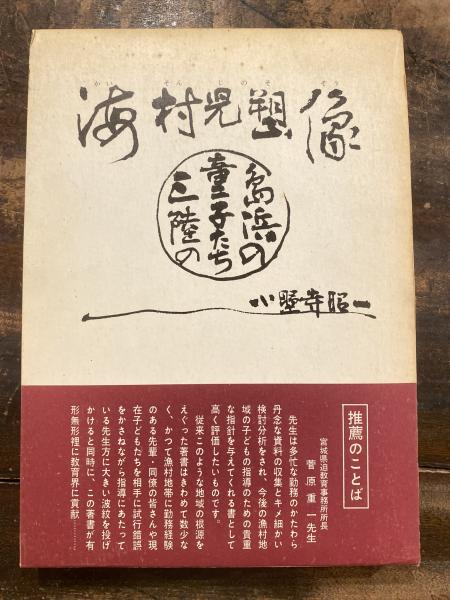 かい そん じのそ ぞう
海村児塑像
島浜の
童子たち
三陸の
小野寺昭一
推薦のことば
宮城県迫教育事務所所長
菅原重一先生
先生は多忙な勤務のかたわら
丹念な資料の収集とキメ細かい
検討分析をされ、今後の漁村地
域の子どもの指導のための貴重
な指針を与えてくれる書として
高く評価したいものです。
従来このような地域の根源を
えぐった著書はきわめて数少な
く、かつて漁村地帯に勤務経験
のある先輩・同僚の皆さんや現
在子どもたちを相手に試行錯誤
をかさねながら指導にあたって
いる先生方に大きい波紋を投げ
かけると同時に、この著書が有
形無形裡に教育界に貢献………